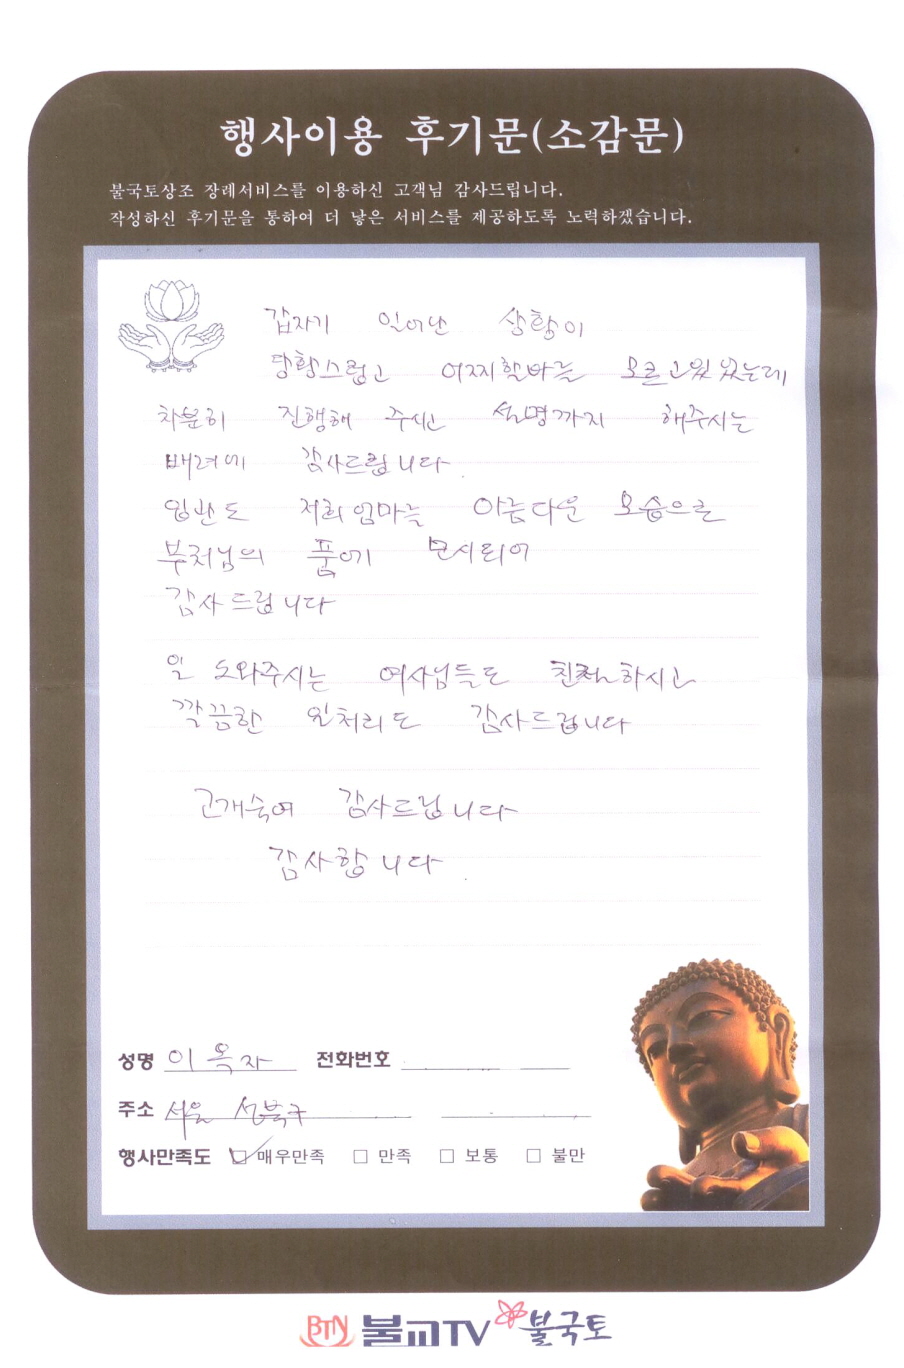 행사이용 후기문(소감문)
불국토상조 장례서비스를 이용하신 고객님 감사드립니다.
작성하신 후기문을 통하여 더 낳은 서비스를 제공하도록 노력하겠습니다.
갑자기 일어난 상황이
당황스럽고 어찌할바를 모르고있었는데
차분히 진행해 주시고 설명까지 해주시는
배려에 감사드립니다.
입관도 저희엄마를 아름다운 모습으로
부처님의 품에 모시되어
감사드립니다
일 도와주시는 여사님들도 친절하시고
깔끔한 일처리도 감사드립니다
고개숙여 감사드립니다
감사합니다.
성명 이옥자 전화번호
주소 서울 성북구
행사만족도 ☑ 매우만족 □ 만족 □ 보통 □ 불만
BTN 불교TV 불국토